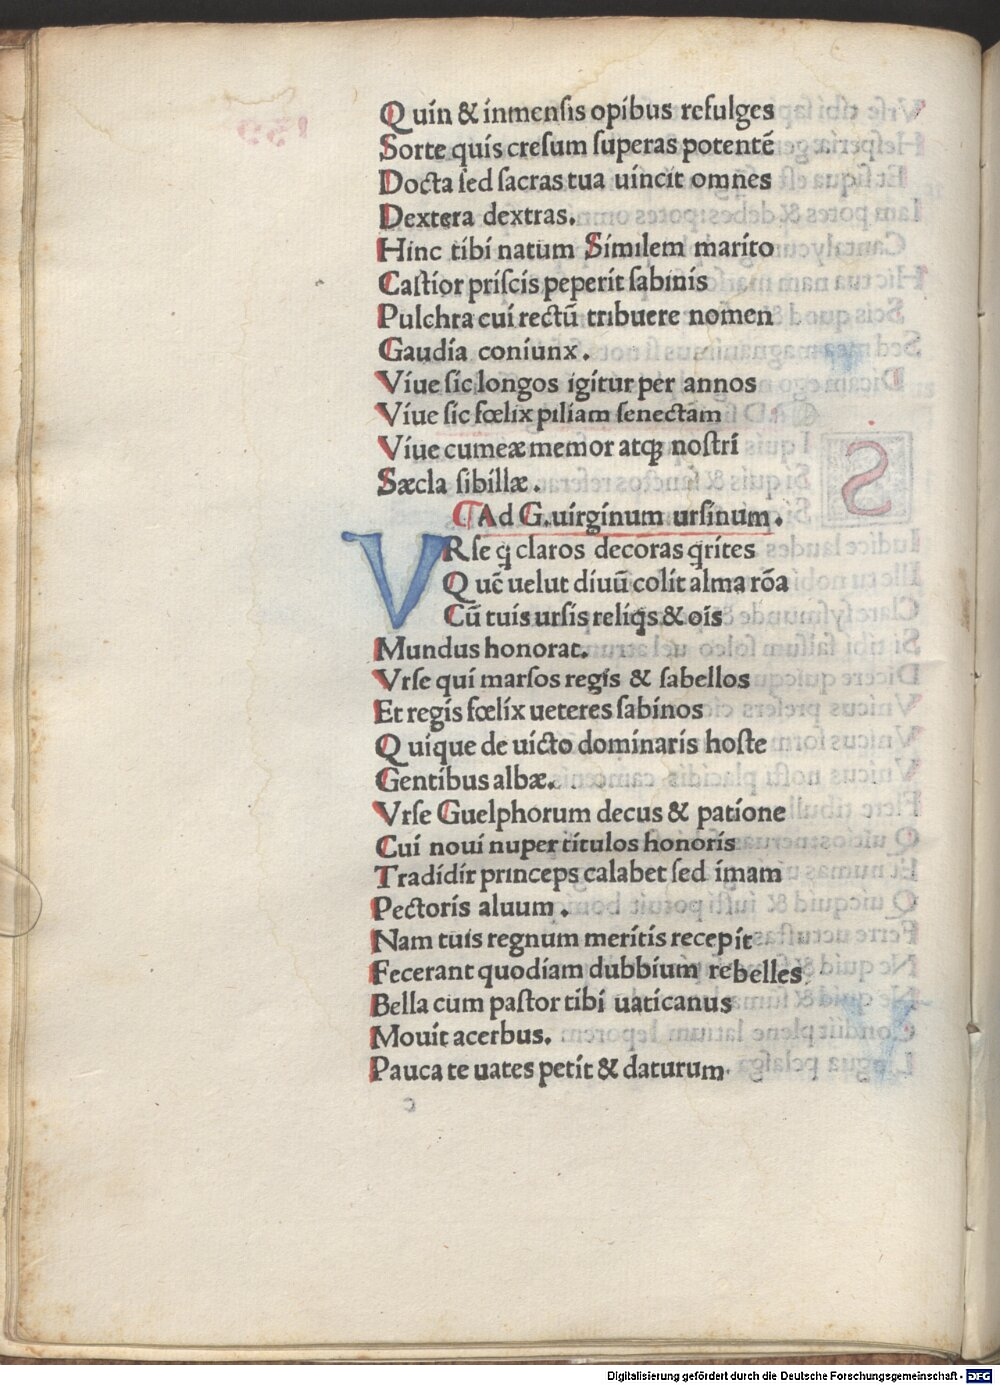 Quin & inmensis opibus refulges
Sorte quis cresum superas potentē
Docta sed sacras tua uincit omnes
Dextera dextras.
Hinc tibi natum Similem marito
Castior priscis peperit sabinis
Pulchra cui rectū tribuere nomen
Gaudia coniunx.
Viue sic longos igitur per annos
Viue sic fœlix piliam senectam
Viue cumeæ memor atqꝫ nostri
Sæcla sibillæ.
Ad G. uirginum ursinum.
VRse q̄ claros decoras q̄rites
Quē uelut diuū colit alma rōa
Cū tuis ursis reliq̄s & oīs
Mundus honorat.
Vrse qui marsos regis & sabellos
Et regis fœlix ueteres sabinos
Quique de uicto dominaris hoste
Gentibus albæ.
Vrse Guelphorum decus & patione
Cui noui nuper titulos honoris
Tradidir princeps calabet sed imam
Pectoris aluum.
Nam tuis regnum meritis recepit
Fecerant quodiam dubbium rebelles
Bella cum pastor tibi uaticanus
Mouit acerbus.
Pauca te uates petit & daturum
c
Digitalisierung gefördert durch die Deutsche Forschungsgemeinschaft - DFG